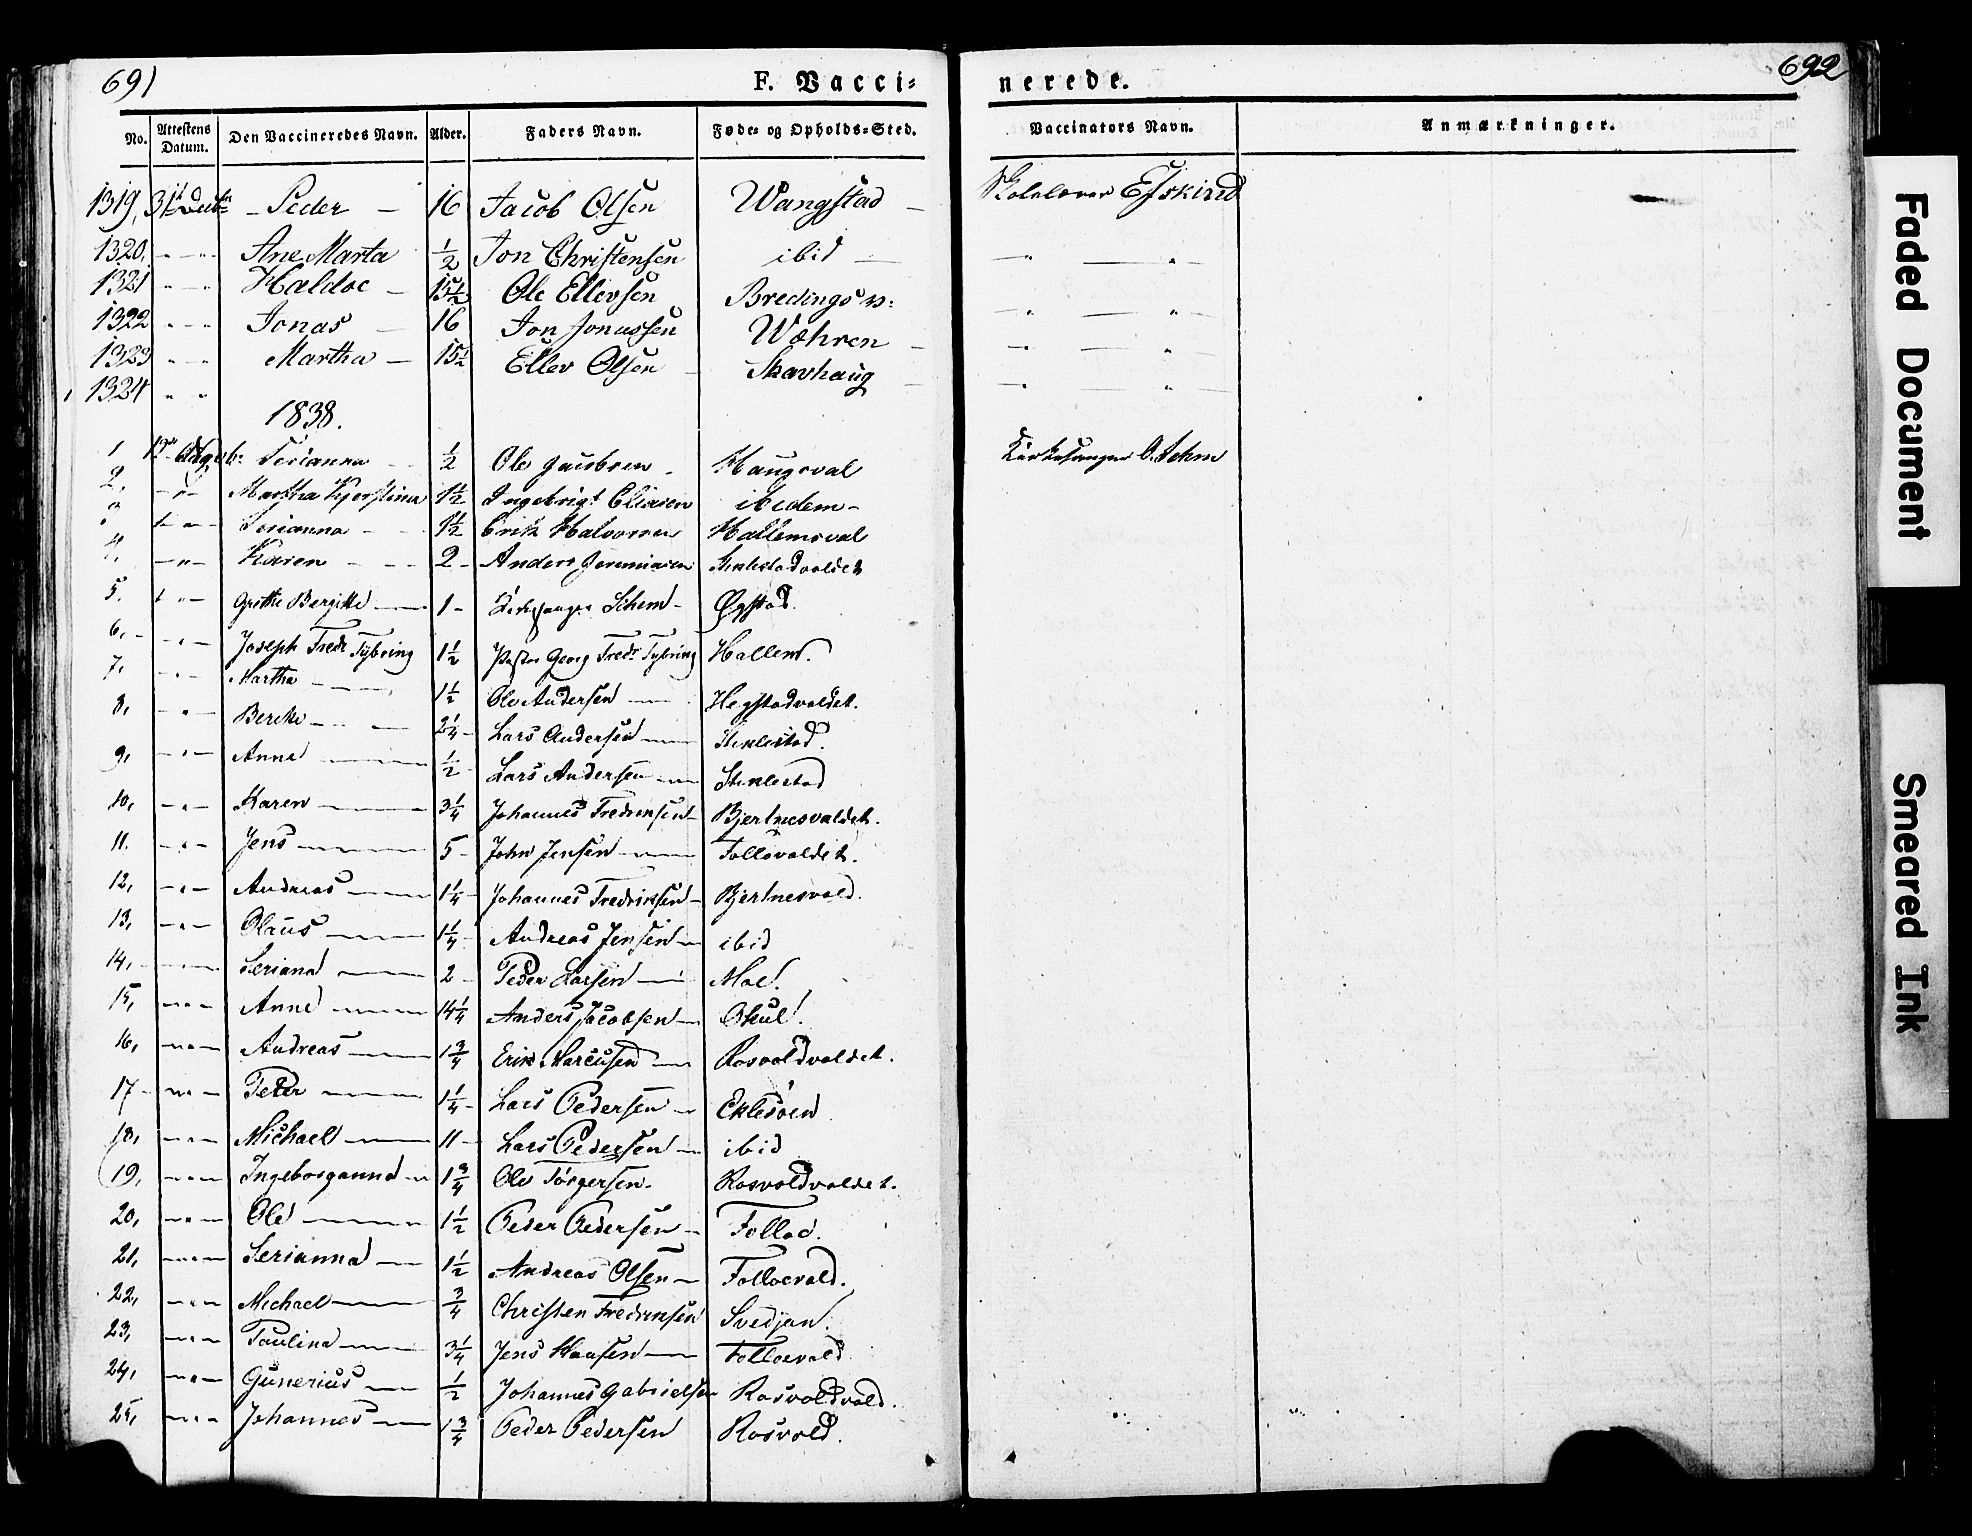 691
F. Vacci-
nerede.
692
No. Attestens Datum. Den Vaccineredes Navn. Alder. Faders Navn. Føde- og Opholds-Sted. Vaccinators Navn. Anmærkninger.
1319, 31te Decbr - Peder - 16 Jacob Olsen Wangstad - Skolelærer Eskind
1320, " " Ane Marta 1/2 Jon Christensen ibid - " "
1321 " " Haldoe - 15 1/2 Ole Ellevsen Bredings " "
1322 " " Jonas - 16 Jon Jonassen Wohren - " "
1323 " " Martha - 15 1/2 Ellev Olsen - Skavhaug - " "
1324 " "
1838.
1 12te Serianna 1/2 Ole Jacobsen - Haugsval Kirkesanger O. Schm
2, - " - Martha Kjerstina 1 1/2 Ingebrigt Eliasen ibidem -
3 - " - Serianna - 1 1/2 Erik Halvorsen Hallemsval
4, - " - Karen - 2 - Anders Jeremiasen Stiklestadvaldet
5. - " - Grethe Bergitte - 1 - Kirkesanger Schem - Øgstad.
6, - " - Joseph Fredr Tybring 1 1/2 Pastor Georg Fredr Tybring Hallem.
7, - " - Martha - 1 1/2 Ole Andersen - Hegstadvaldet.
8, - " - Berethe - 2 1/4 - Lars Andersen - Stiklestad.
9, - " - Anne - 1/2 - Lars Andersen - Stiklestad
10, - " - Karen - 3 1/4 Johannes Fredriksen - Bjertnesvaldet.
11. - " - Jens - 5 - John Jensen - Follovaldet.
12, - " - Andreas - 1 1/4 - Johannes Fredriksen - Bjertnesvald.
13, - " - Olaus - 1 1/4 - Andreas Jensen - ibid
14, - " - Seriana - 2 - Peder Larsen - Moe.
15, - " - Anne - 14 1/4 Anders Jacobsen - Okul.
16, - " - Andreas - 1 3/4 Erik Marcusen - Rosvoldvaldet.
17 - " - Peter - 1 1/4 - Lars Pedersen - Eklesøen
18, - " - Michael - 11 - Lars Pedersen - ibid
19, - " - Ingeborganna - 1 3/4 Ole Torgersen - Rosvoldvaldet.
20, - " - Ole - 1 1/2 Peder Pedersen - Folloe.
21, - " - Serianna - 1 1/2 Andreas Olsen - Folloevald.
22, - " - Michael - 3/4 Christen Fredriksen Svedjan.
23, - " - Paulina - 3 1/4 Jens Hansen - Folloevald
24, - " - Gunerius - 1/2 Johannes Gabrielsen Rosvoldvald.
25, - " - Johannes - 1 3/4 Peder Pedersen Rosvold.
Faded Document
Smeared Ink